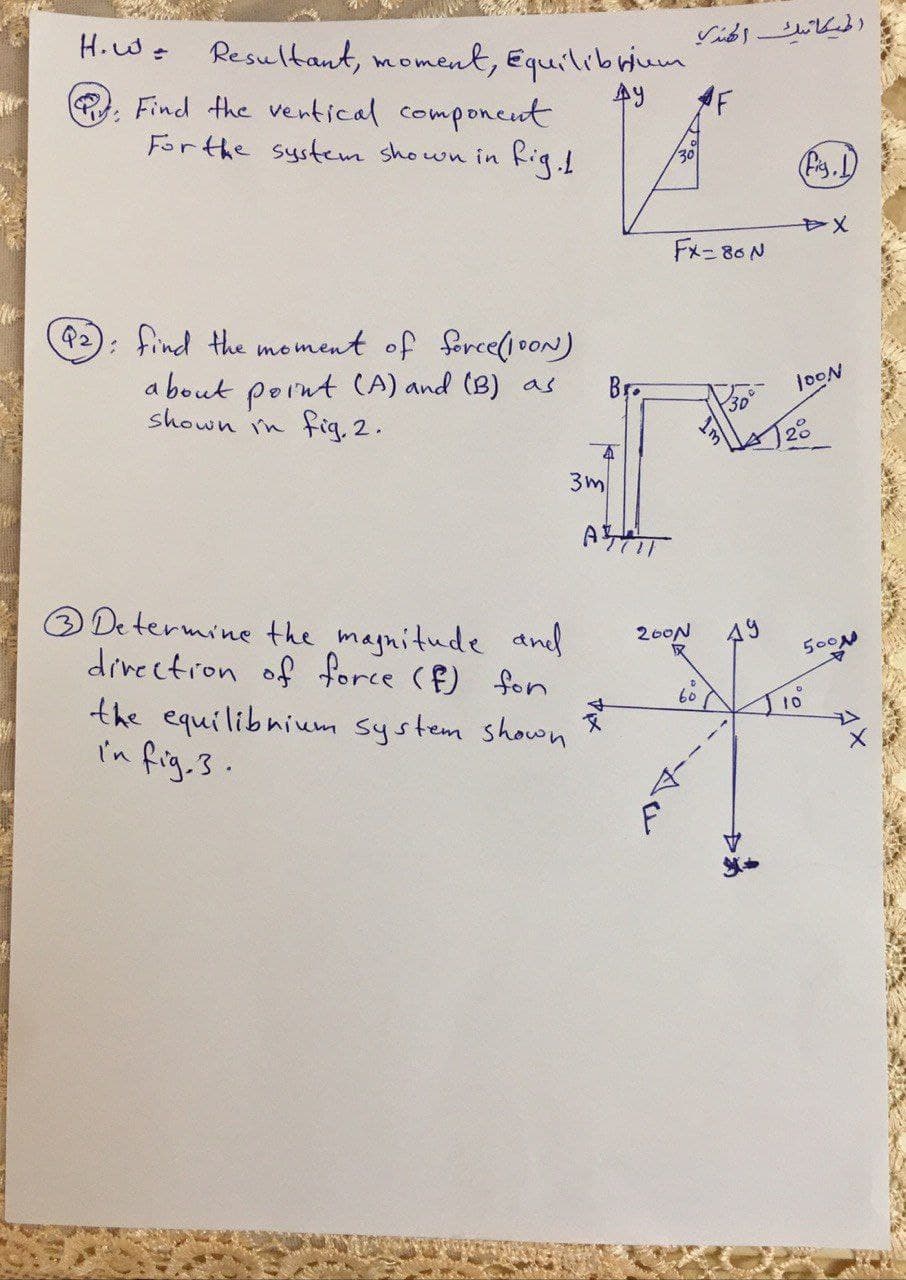 الميكانيك الهندسي
H.W = Resultant, moment, Equilibrium
Q1: Find the vertical component
For the system shown in Fig.1
y
F
30°
Fig.1
X
Fx=80N
Q2: find the moment of force(100N)
about point (A) and (B) as
shown in fig.2.
B
30°
100N
1m
20°
3m
A
③ Determine the magnitude and
direction of force (F) for
the equilibrium system shown
in fig.3.
200N
y
500N
60°
10°
X
F